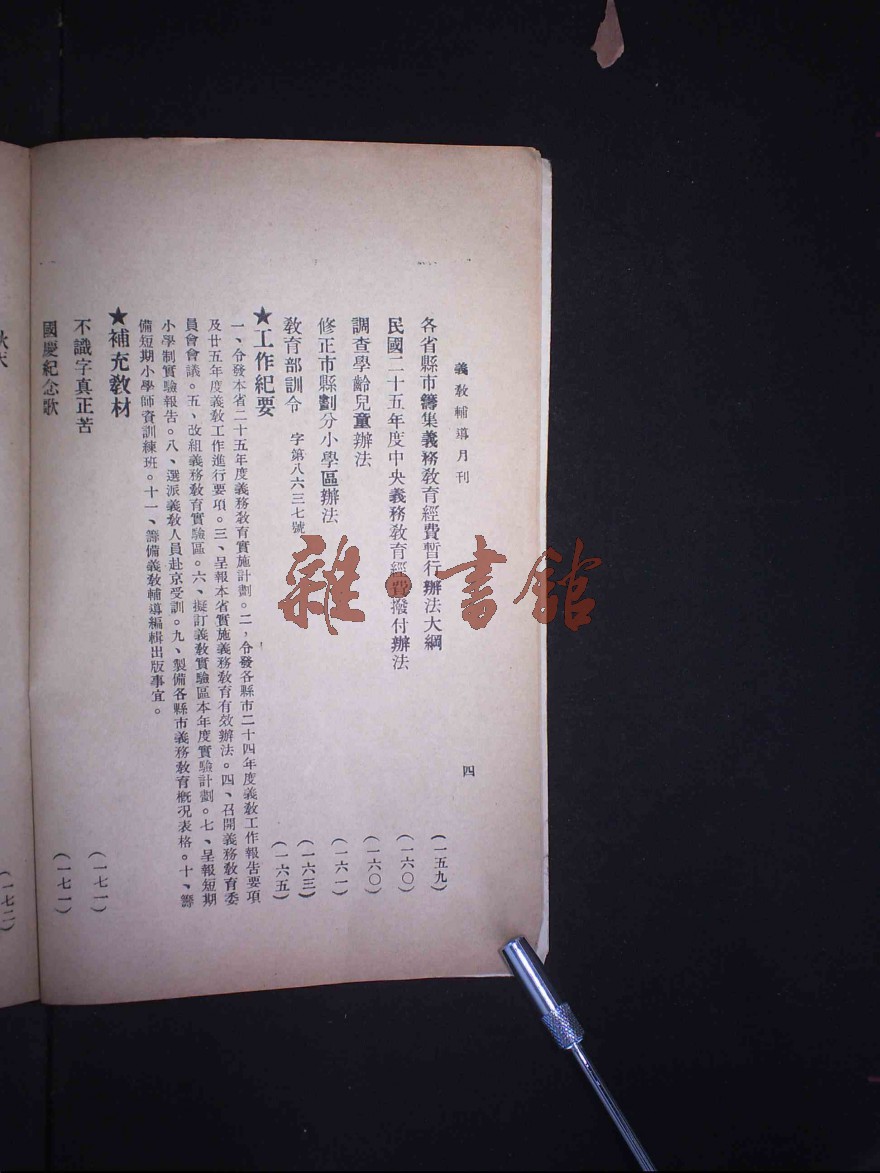 義教輔導月刊 四
各省縣市籌集義務教育經費暫行辦法大綱 (一五九)
民國二十五年度中央義務教育經費撥付辦法 (一六〇)
調查學齡兒童辦法 (一六〇)
修正市縣劃分小學區辦法 (一六一)
教育部訓令 字第八六三七號 (一六三)
★工作紀要 (一六五)
一、令發本省二十五年度義務教育實施計劃。二，令發各縣市二十四年度義教工作報告要項
及廿五年度義教工作進行要項。三、呈報本省實施義務教育有效辦法。四、召開義務教育委
員會會議。五、改組義務教育實驗區。六、擬訂義教實驗區本年度實驗計劃。七、呈報短期
小學制實驗報告。八、選派義教人員赴京受訓。九、製備各縣市義務教育概况表格。十、籌
備短期小學師資訓練班。十一、籌備義教輔導編輯出版事宜。
★補充教材
不識字真正苦 (一七一)
國慶紀念歌 (一七一)
秋天 (一七二)
雜·書館